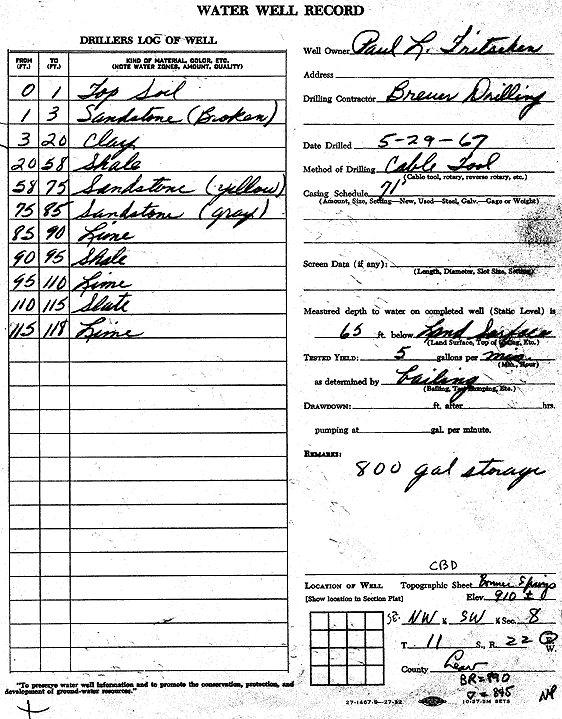 WATER WELL RECORD
DRILLERS LOG OF WELL
FROM (FT.) TO (FT.) KIND OF MATERIAL, COLOR, ETC. (NOTE WATER ZONES, AMOUNT, QUALITY)
0 1 Top Soil
1 3 Sandstone (Broken)
3 20 Clay
20 58 Shale
58 75 Sandstone (yellow)
75 85 Sandstone (gray)
85 90 Lime
90 95 Shale
95 110 Lime
110 115 Slate
115 118 Lime
"To preserve water well information and to promote the conservation, protection, and
development of ground-water resources."
Well Owner Paul L. Fritschen
Address
Drilling Contractor Breuer Drilling
Date Drilled 5-29-67
Method of Drilling Cable Tool
(Cable tool, rotary, reverse rotary, etc.)
Casing Schedule 71'
(Amount, Size, Setting—New, Used—Steel, Galv.—Gage or Weight)
Screen Data (if any):
(Length, Diameter, Slot Size, Setting)
Measured depth to water on completed well (Static Level) is
65 ft. below Land Surface
(Land Surface, Top of Casing, Etc.)
TESTED YIELD: 5 gallons per min.
(Min., Hour)
as determined by bailing
(Bailing, Test Pumping, Etc.)
DRAWDOWN: ft. after hrs.
pumping at gal. per minute.
REMARKS:
800 gal storage
CBD
LOCATION OF WELL Topographic Sheet Bonner Springs
[Show location in Section Plat] Elev. 910 ±
SE. NW ¼ SW ¼ Sec. 8
T. 11 S., R. 22 E W.
County Leav
BR=890
▽=845
NP
27-1467-S—27-52 10-57-5M SETS